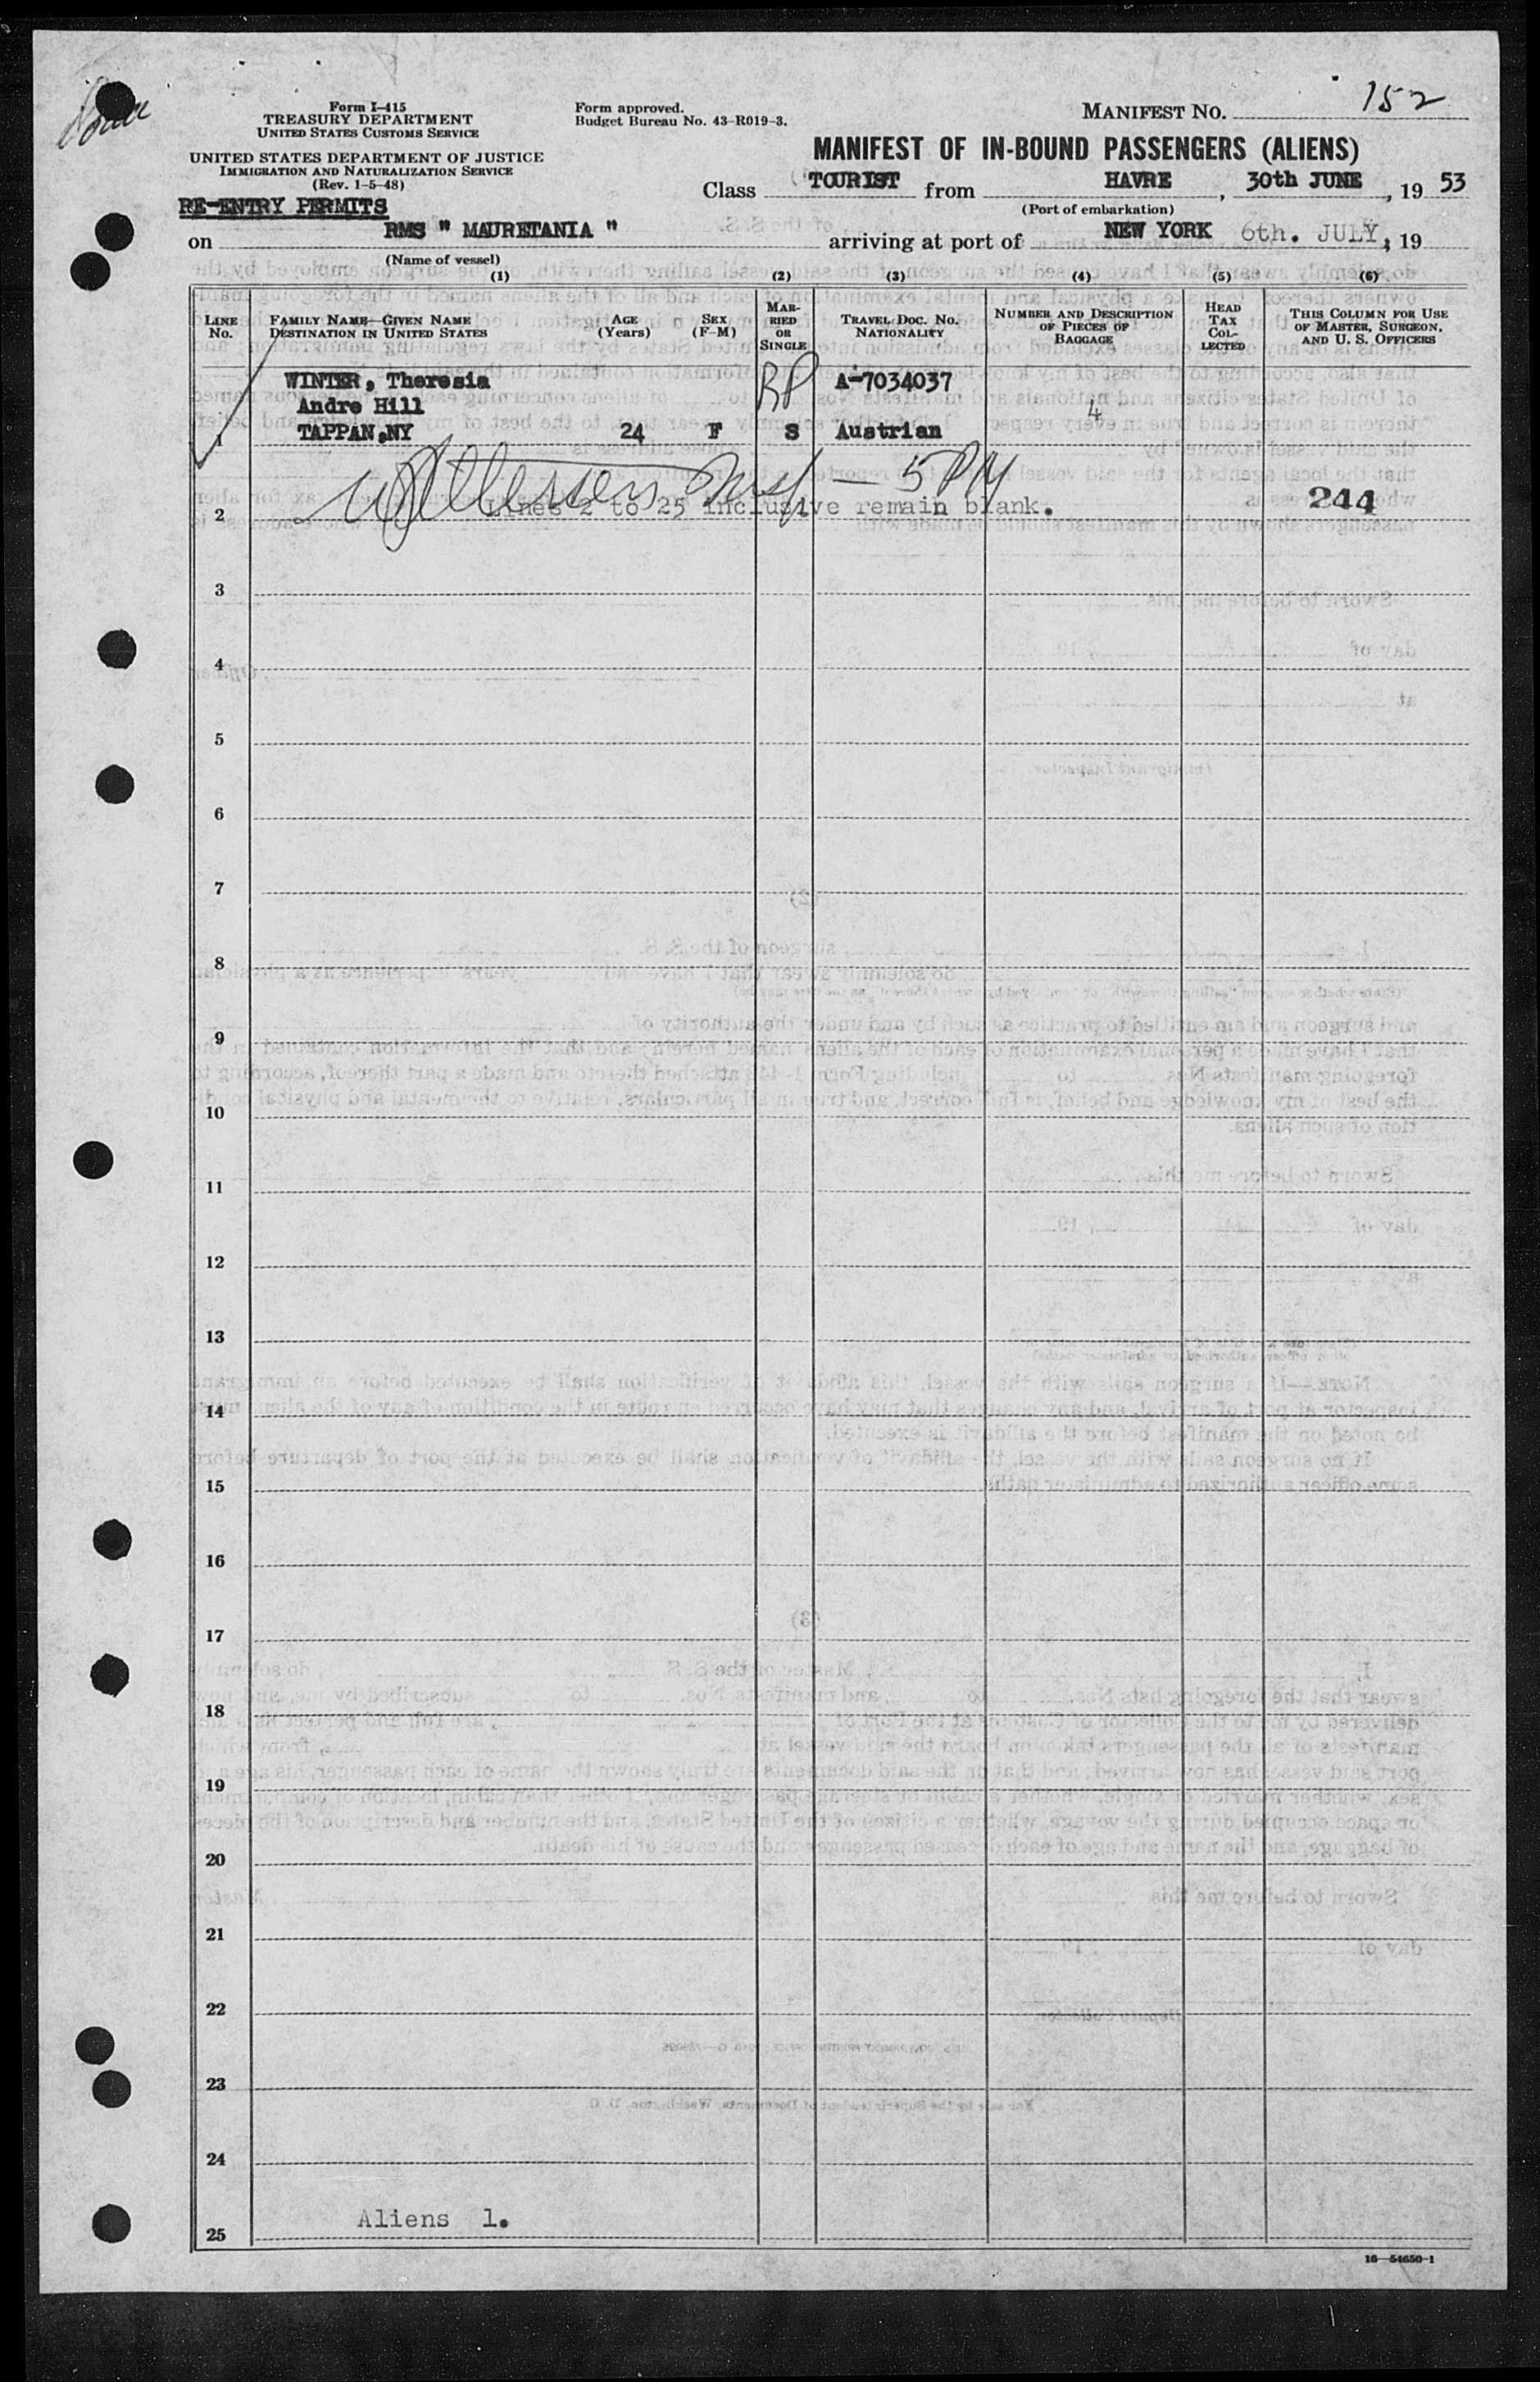 Form I-415
TREASURY DEPARTMENT
UNITED STATES CUSTOMS SERVICE
UNITED STATES DEPARTMENT OF JUSTICE
IMMIGRATION AND NATURALIZATION SERVICE
(Rev. 1-5-48)
RE-ENTRY PERMITS
Form approved.
Budget Bureau No. 43-R019-3.
MANIFEST NO. 152
MANIFEST OF IN-BOUND PASSENGERS (ALIENS)
Class TOURIST from HAVRE, 30th JUNE, 19 53
(Port of embarkation)
on RMS " MAURETANIA " arriving at port of NEW YORK 6th. JULY, 19
(Name of vessel)
(1) (2) (3) (4) (5) (6)
LINE No.
FAMILY NAME—GIVEN NAME
DESTINATION IN UNITED STATES
AGE (Years)
SEX (F-M)
MARRIED OR SINGLE
TRAVEL DOC. NO. NATIONALITY
NUMBER AND DESCRIPTION OF PIECES OF BAGGAGE
HEAD TAX COLLECTED
THIS COLUMN FOR USE OF MASTER, SURGEON, AND U. S. OFFICERS
WINTER, Theresia RP A-7034037
Andre Hill 4
1 TAPPAN,NY 24 F S Austrian
Insp — 5 PM
2 Lines 2 to 25 inclusive remain blank. 244
3
4
5
6
7
8
9
10
11
12
13
14
15
16
17
18
19
20
21
22
23
24
Aliens 1.
25
16—54650-1